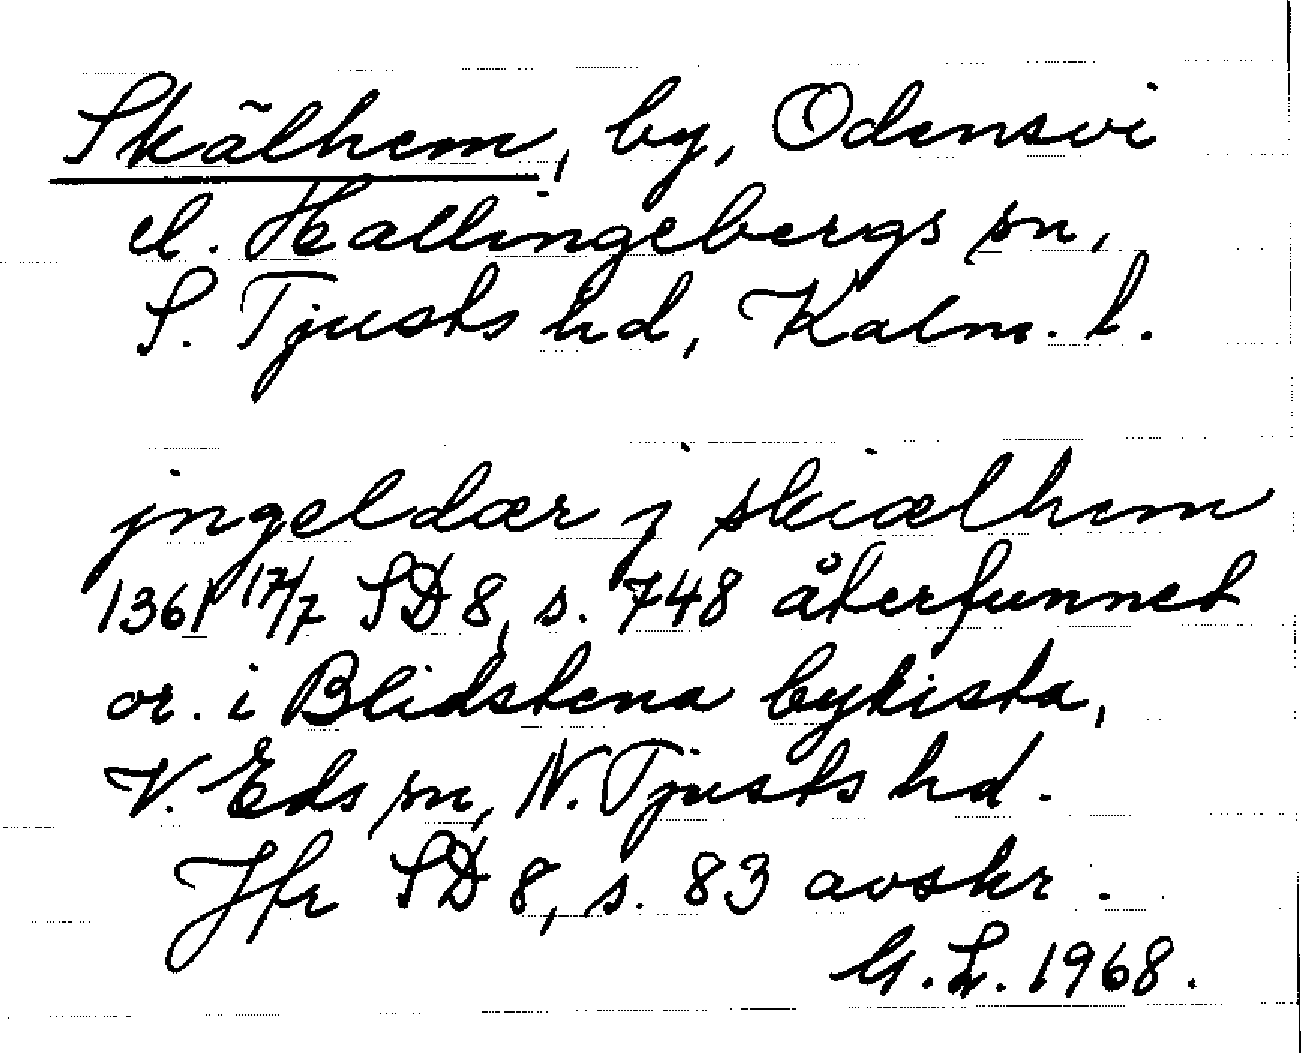 Skälhem, by, Odensvi
el. Hallingebergs sn,
S. Tjusts hd, Kalm. l.
jngeldær j skiælhem
1361 17/7 SD 8, s. 748 återfunnet
or. i Blidstena bykista,
V. Eds sn, N. Tjusts hd.
Jfr SD 8, s. 83 avskr.
G. L. 1968.